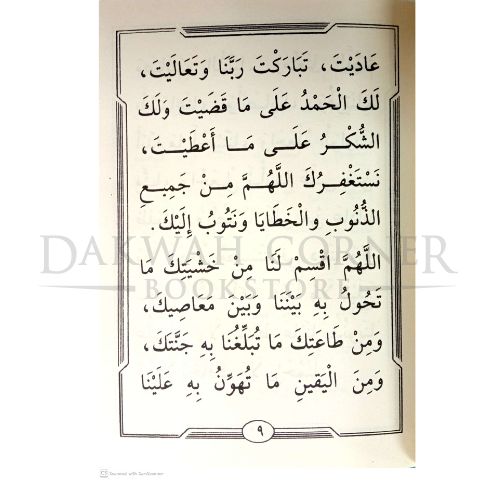 عَادَيْتَ، تَبَارَكْتَ رَبَّنَا وَتَعَالَيْتَ،
لَكَ الْحَمْدُ عَلَى مَا قَضَيْتَ وَلَكَ
الشُّكْرُ عَلَى مَا أَعْطَيْتَ،
نَسْتَغْفِرُكَ اللَّهُمَّ مِنْ جَمِيعِ
الذُّنُوبِ والْخَطَايَا وَنَتُوبُ إِلَيْكَ.
DAKWAH CORNER
اللَّهُمَّ اقْسِمْ لَنَا مِنْ خَشْيَتِكَ مَا
BOOKSTORE
تَحُولُ بِهِ بَيْنَنَا وَبَيْنَ مَعَاصِيكَ،
وَمِنْ طَاعَتِكَ مَا تُبَلِّغُنَا بِهِ جَنَّتَكَ،
وَمِنَ الْيَقِينِ مَا تُهَوِّنُ بِهِ عَلَيْنَا
٩
CS Scanned with CamScanner